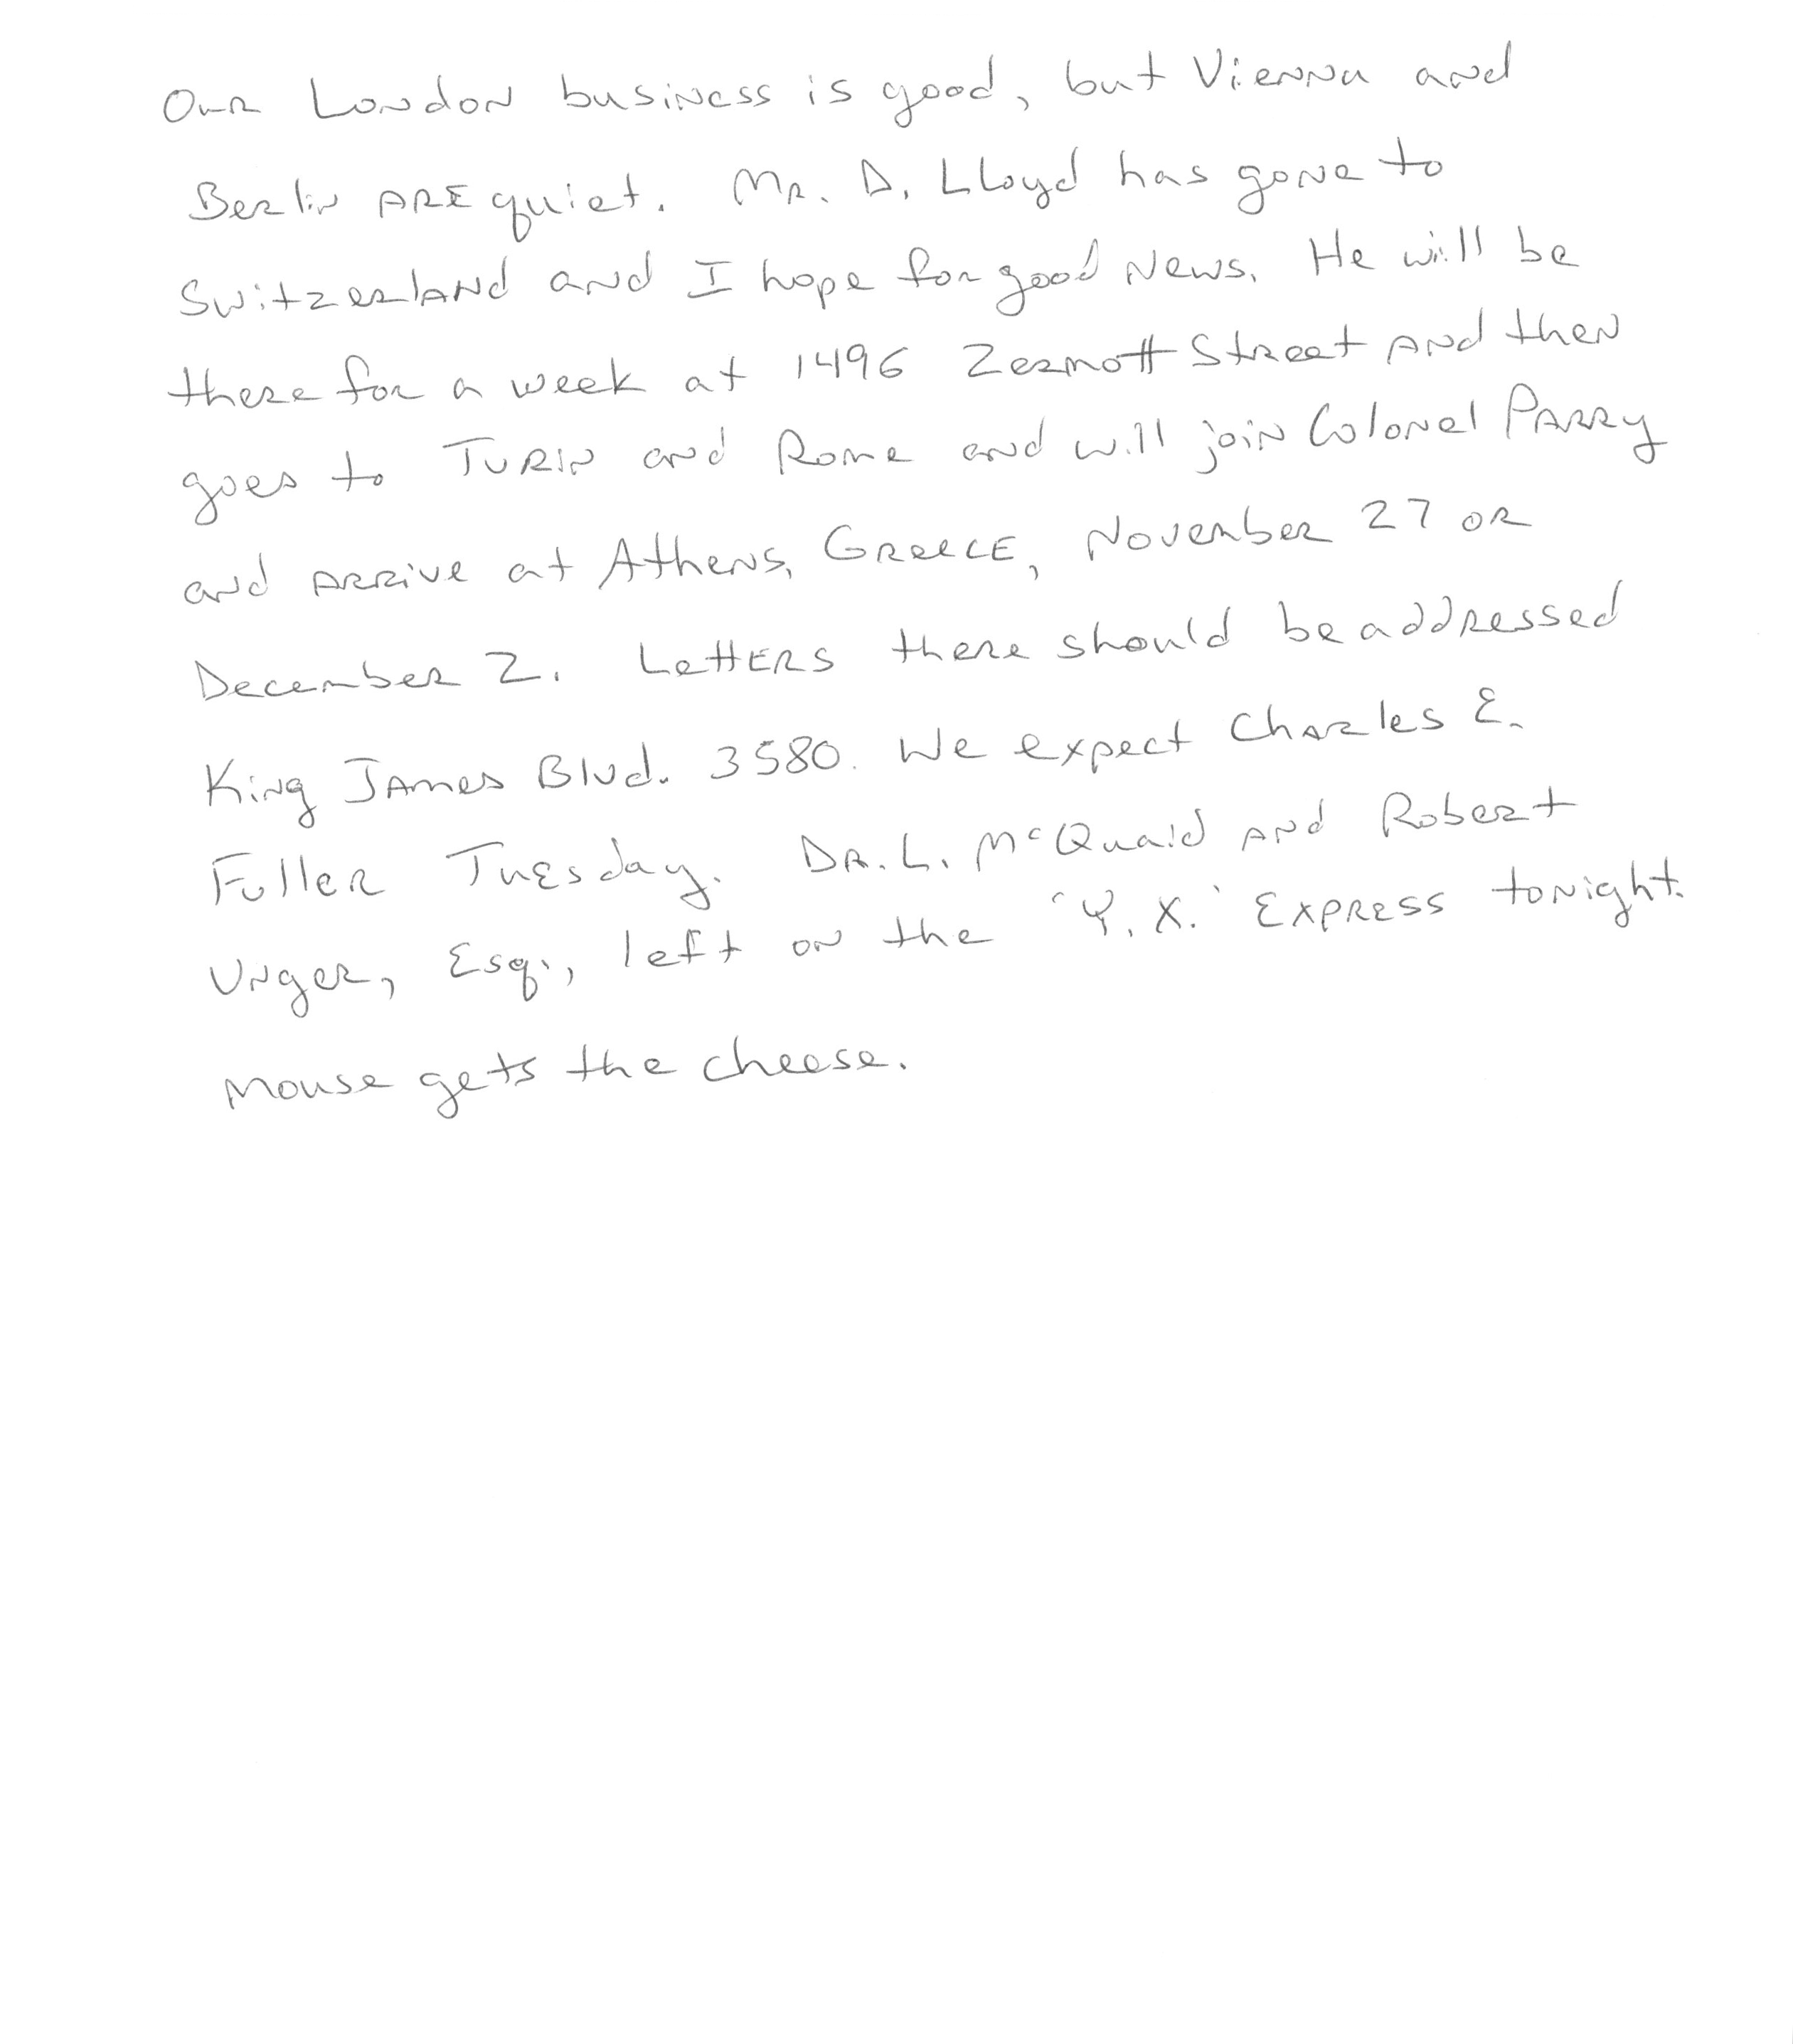 Our London business is good, but Vienna and
Berlin ARE quiet. Mr. D. Lloyd has gone to
Switzerland and I hope for good News. He will be
there for a week at 1496 Zermott Street and then
goes to Turin and Rome and will join Colonel Parry
and arrive at Athens, Greece, November 27 or
December 2. Letters there should be addressed
King James Blvd. 3580. We expect Charles E.
Fuller Tuesday. Dr. L. McQuaid and Robert
Unger, Esq., left on the 'Y. X.' Express tonight.
Mouse gets the cheese.